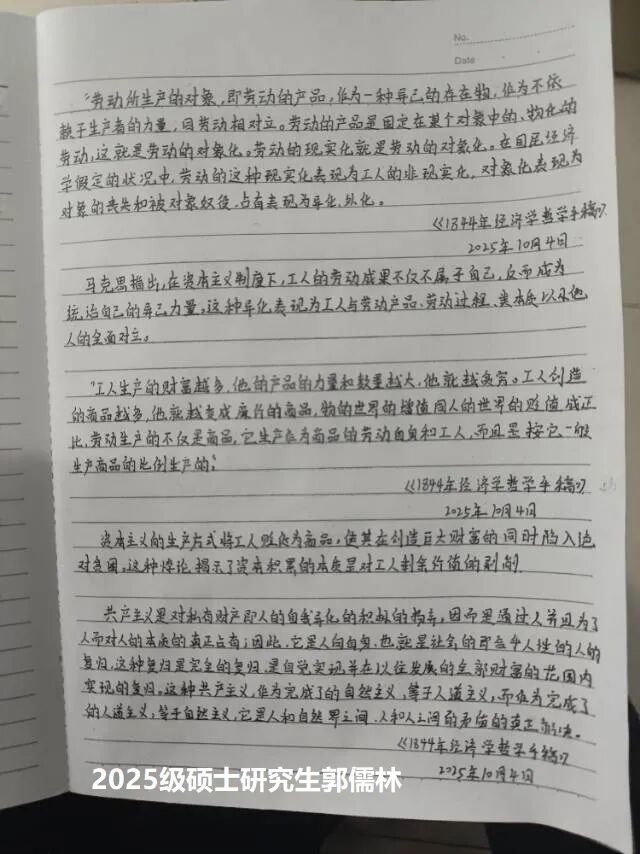 No.
Date
“劳动所生产的对象，即劳动的产品，作为一种异己的存在物，作为不依
赖于生产者的力量，同劳动相对立。劳动的产品是固定在某个对象中的、物化的
劳动，这就是劳动的对象化。劳动的现实化就是劳动的对象化。在国民经济
学假定的状况中，劳动的这种现实化表现为工人的非现实化，对象化表现为
对象的丧失和被对象奴役，占有表现为异化、外化。
《1844年经济学哲学手稿》
2025年10月4日
马克思指出，在资本主义制度下，工人的劳动成果不仅不属于自己，反而成为
统治自己的异己力量。这种异化表现为工人与劳动产品、劳动过程、类本质以及他
人的全面对立。
“工人生产的财富越多，他的产品的力量和数量越大，他就越贫穷。工人创造
的商品越多，他就越变成廉价的商品，物的世界的增值同人的世界的贬值成正
比，劳动生产的不仅是商品，它生产作为商品的劳动自身和工人，而且是按它一般
生产商品的比例生产的，
《1844年经济学哲学手稿》
2025年10月4日
资本主义的生产方式将工人贬低为商品，使其在创造巨大财富的同时陷入绝
对贫困。这种悖论揭示了资本积累的本质是对工人剩余价值的剥削
共产主义是对私有财产即人的自我异化的积极的扬弃，因而是通过人并且为了
人而对人的本质的真正占有；因此，它是人向自身、也就是社会的即合乎人性的人的
复归，这种复归是完全的复归，是自觉实现并在以往发展的全部财富的范围内
实现的复归。这种共产主义，作为完成了的自然主义，等于人道主义，而作为完成了
的人道主义，等于自然主义，它是人和自然界之间、人和人之间的矛盾的真正解决。
《1844年经济学哲学手稿》
2025年10月4日
2025级硕士研究生郭儒林